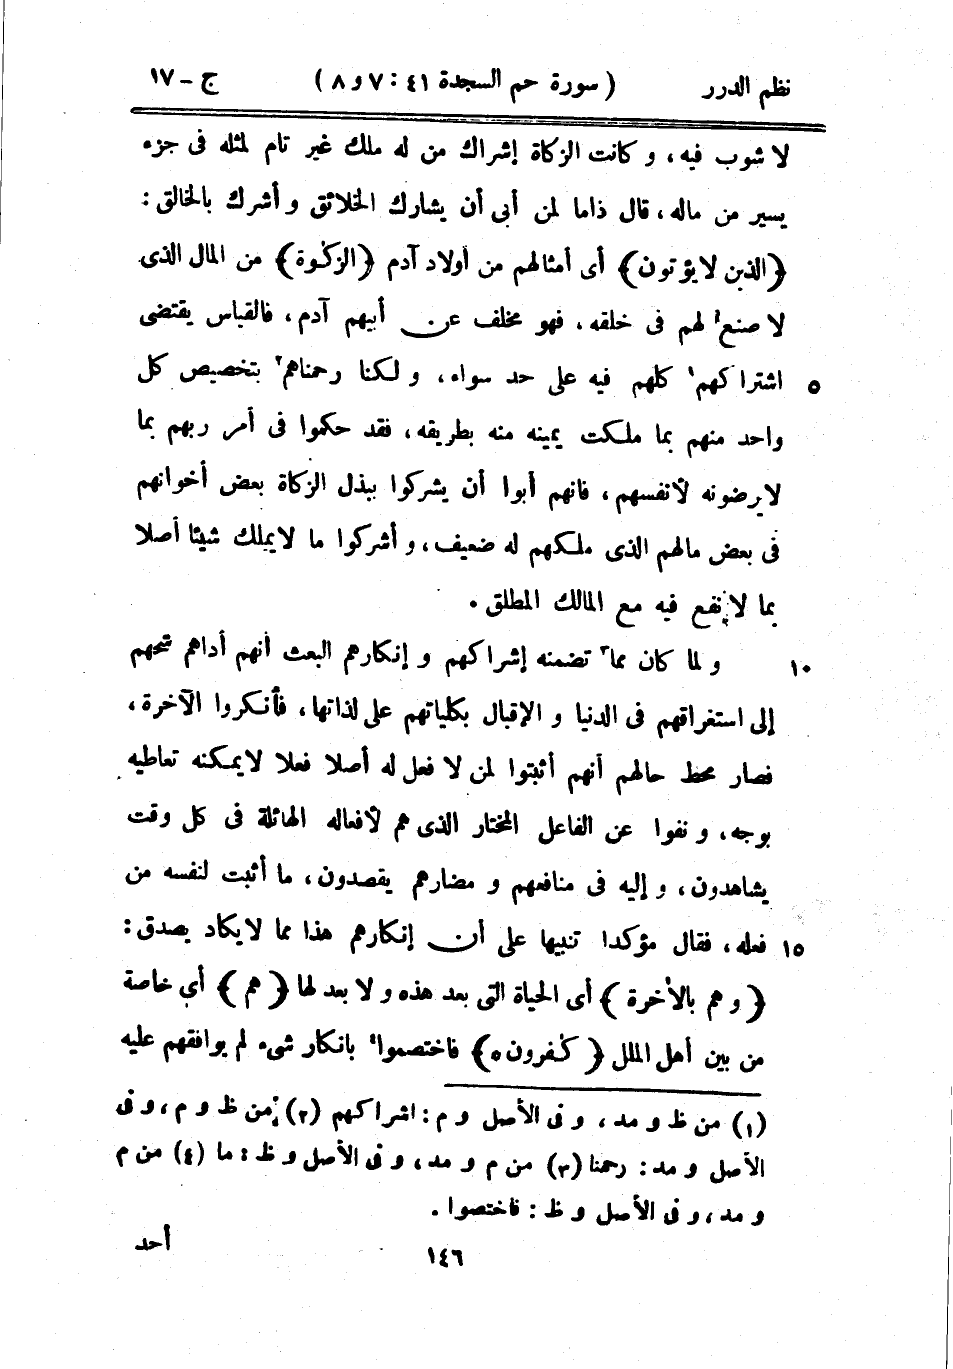 نظم الدرر ( سورة حم السجدة ٤١ : ٧ و ٨ ) ج - ١٧
لا شوب فيه، و كانت الزكاة إشراك من له ملك غير تام لمثله فى جزء
يسير من ماله، قال ذاما لمن أبى أن يشارك الخلائق و أشرك بالخالق :
﴿الذين لا يؤتون﴾ أى أمثالهم من أولاد آدم ﴿الزكٰوة﴾ من المال الذى
لا صنع لهم فى خلقه، فهو مخلف عن أبيهم آدم، فالقياس يقتضى
٥ اشتراكهم١ كلهم فيه على حد سواء، و لكنا رحمناهم٢ بتخصيص كل
واحد منهم بما ملكت يمينه منه بطريقه، فقد حكموا فى أمر ربهم بما
لا يرضونه لأنفسهم، فانهم أبوا أن يشركوا ببذل الزكاة بعض أخوانهم
فى بعض مالهم الذى ملكهم له ضعيف، و أشركوا ما لا يملك شيئا أصلا
بما لا نفع فيه مع المالك المطلق .
١٠ و لما كان مما٣ تضمنه إشراكهم و إنكارهم البعث أنهم أداهم شحهم
إلى استغراقهم فى الدنيا و الإقبال بكلياتهم على لذاتها، فأنكروا الآخرة،
فصار محط حالهم أنهم أثبتوا لمن لا فعل له أصلا فعلا لا يمكنه تعاطيه
بوجه، و نفوا عن الفاعل المختار الذى هم لأفعاله الهائلة فى كل وقت
يشاهدون، و إليه فى منافعهم و مضارهم يقصدون، ما أثبت لنفسه من
١٥ فعله، فقال مؤكدا تنبيها على أن إنكارهم هذا مما لا يكاد يصدق :
﴿ و هم بالأخرة ﴾ أى الحياة التى بعد هذه و لا بعد لها ﴿ هم ﴾ أي خاصة
من بين أهل الملل ﴿ كٰفرون ه﴾ فاختصموا٤ بانكار شىء لم يوافقهم عليه
(١) من ظ و مد، و فى الأصل و م : اشراكهم (٢) من ظ و م، و فى
الأصل و مد : رحمنا (٣) من م و مد، و فى الأصل و ظ : ما (٤) من م
و مد، و فى الأصل و ظ : فاختصوا .
أحد
١٤٦